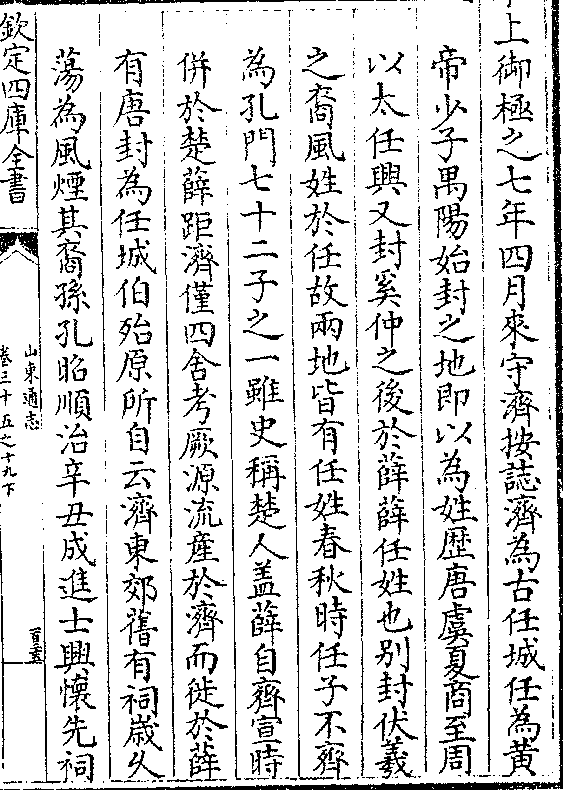 上御極之七年四月來守濟按誌濟為古任城任為黄
帝少子禺陽始封之地即以為姓歴唐虞夏商至周
以太任興又封奚仲之後於薛薛任姓也别封伏羲
之裔風姓於任故兩地皆有任姓春秋時任子不齊
為孔門七十二子之一雖史稱楚人盖薛自齊宣時
併於楚薛距濟僅四舍考厥源流産於濟而徙於薛
有唐封為任城伯殆原所自云濟東郊舊有祠歳久
蕩為風煙其裔孫孔昭順治辛丑成進士興懷先祠
欽定四庫全書
山東通志
卷三十五之十九下